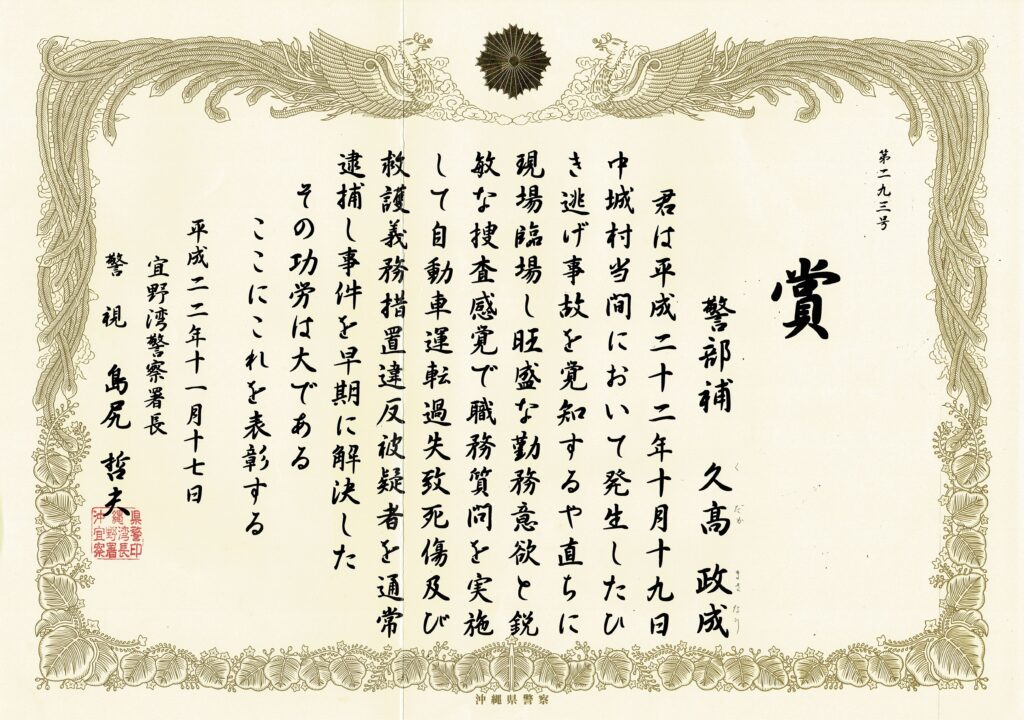 第二九三号
賞
警部補 久高 政成
くだか まさなり
君は平成二十二年十月十九日
中城村当間において発生したひ
き逃げ事故を覚知するや直ちに
現場臨場し旺盛な勤務意欲と鋭
敏な捜査感覚で職務質問を実施
して自動車運転過失致死傷及び
救護義務措置違反被疑者を通常
逮捕し事件を早期に解決した
その功労は大である
ここにこれを表彰する
平成二二年十一月十七日
宜野湾警察署長
警視 島尻 哲夫
沖縄県宜野湾警察署長印
沖縄県警察